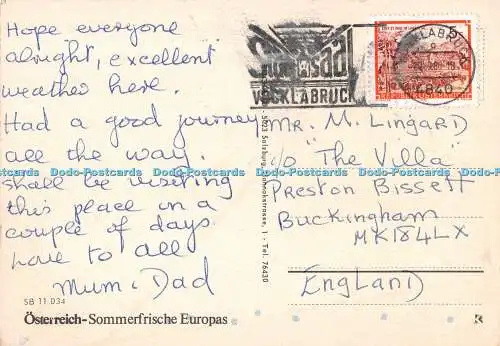 Hope everyone
alright, excellent
weather here.
Had a good journey
all the way.
shall be visiting
this place in a
couple of days.
Love to all
Mum & Dad
SB 11.034
Österreich-Sommerfrische Europas
5023 Salzburg, 1 - Tel. 76430
VÖCKLABRUCK
4840
Mr. M. Lingard
c/o "The Villa"
Preston Bissett
Buckingham
MK184LX
England
Dodo-Postcards Dodo-Postcards Dodo-Postcards Dodo-Postcards